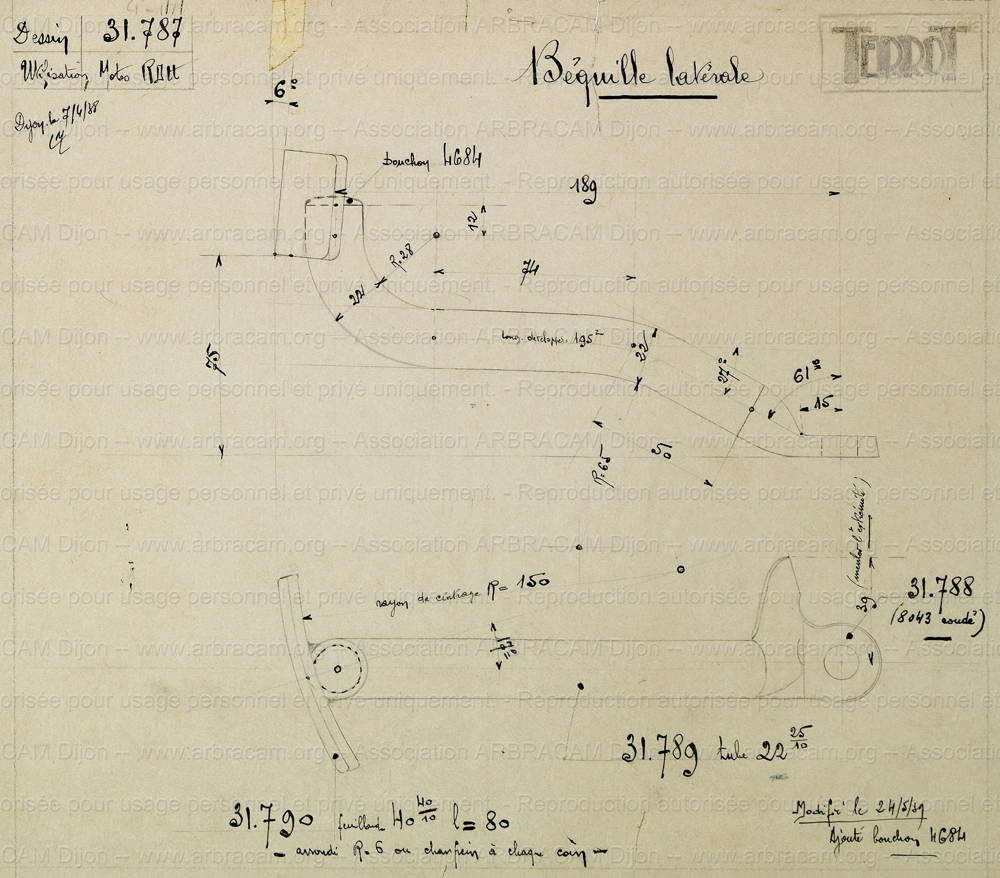 Dessin 31.787
Utilisation, Motos RDH
Dijon le 7/4/38
Béquille latérale
TERROT
6°
bouchon 4684
189
12
R.28
74
22
75
Long. développée 195
22
27°
61
15
R.65
51
39
rayon de cintrage R= 150
31.788
(8043 coudé)
31.789 tube 22 25/10
31.790 feuillard 40 40/10 l= 80
– arrondi R.6 ou chanfrein à chaque coin –
Modifié le 24/5/39
Ajouté bouchon 4684
orisée pour usage personnel et privé uniquement. - Reproduction autorisée pour usage personnel et
CAM Dijon – www.arbracam.org – Association ARBRACAM Dijon – www.arbracam.org – Association